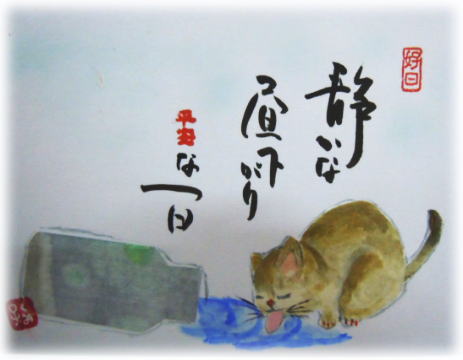 好日
静かな
昼下がり
な一日